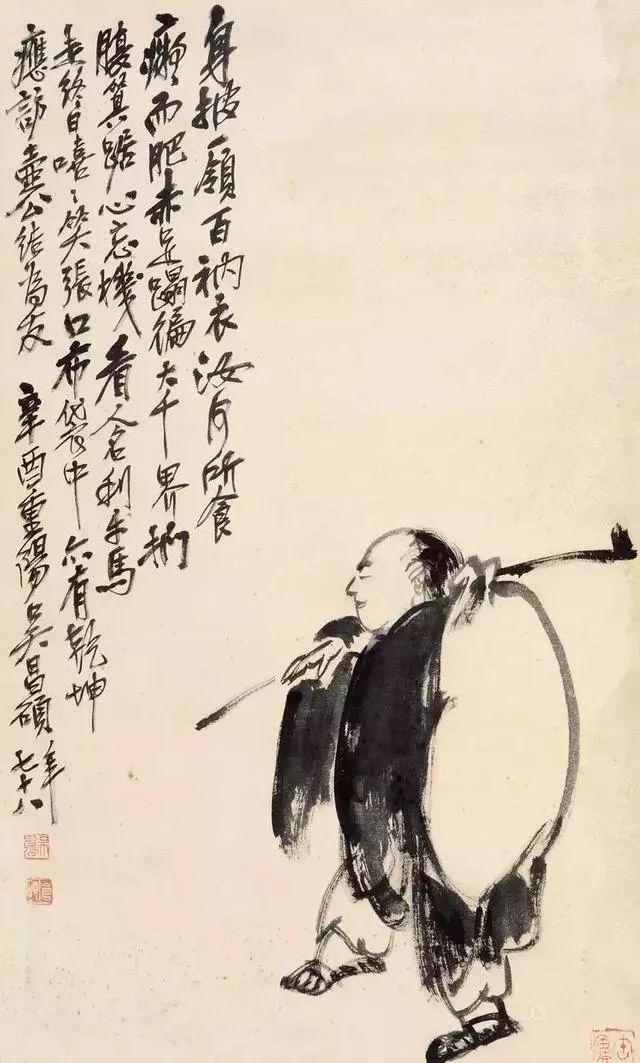 身披一領百衲衣汝何所食
癡而肥赤足蹋徧大千界捫
腹箕踞心忘機看人名利牛馬
走終日嘻〻笑張口布袋中亦有乾坤
應訪壺公結為友 辛酉重陽吳昌碩年
七十八